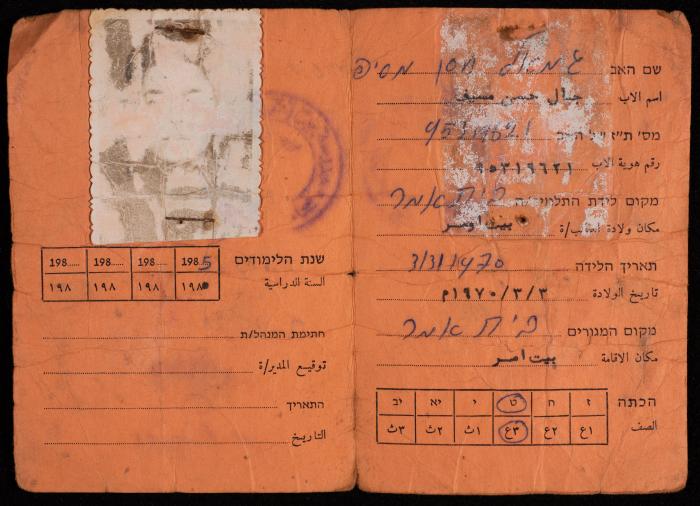 שם האב
اسم الاب جمال حسن مسيف
מס' ת"ז של האב
رقم هوية الاب ٩٥٣١٩٦٢١
מקום לידת בית אמר
مكان ولادة بيت امر
תאריך הלידה 3/3/1970
تاريخ الولادة ١٩٧٠/٣/٣م
מקום המגורים בית אמר
مكان الاقامة بيت امر
הכתה ז ח ט י יא יב
الصف ١ع ٢ع ٣ع ١ث ٢ث ٣ث
שנת הלימודים 1985 198 198 198
السنة الدراسية ١٩٨ ١٩٨ ١٩٨
חתימת המנהל/ת
توقيع المدير/ة
התאריך
التاريخ